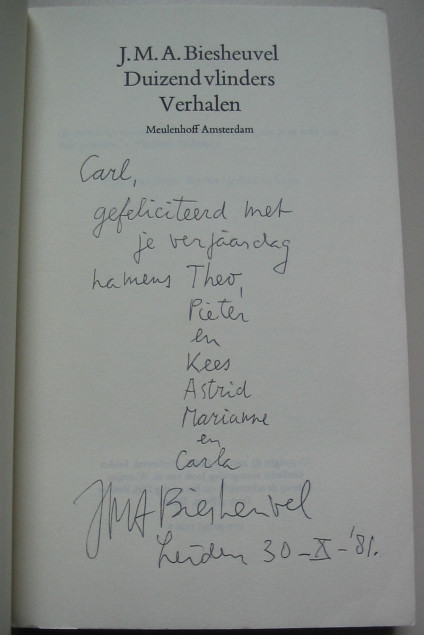 J.M.A. Biesheuvel
Duizend vlinders
Verhalen
Meulenhoff Amsterdam
Carl,
gefeliciteerd met
je verjaardag
namens Theo,
Pieter
en
Kees
Astrid
Marianne
en
Carla
JMA Biesheuvel
Leiden 30-X-'81.